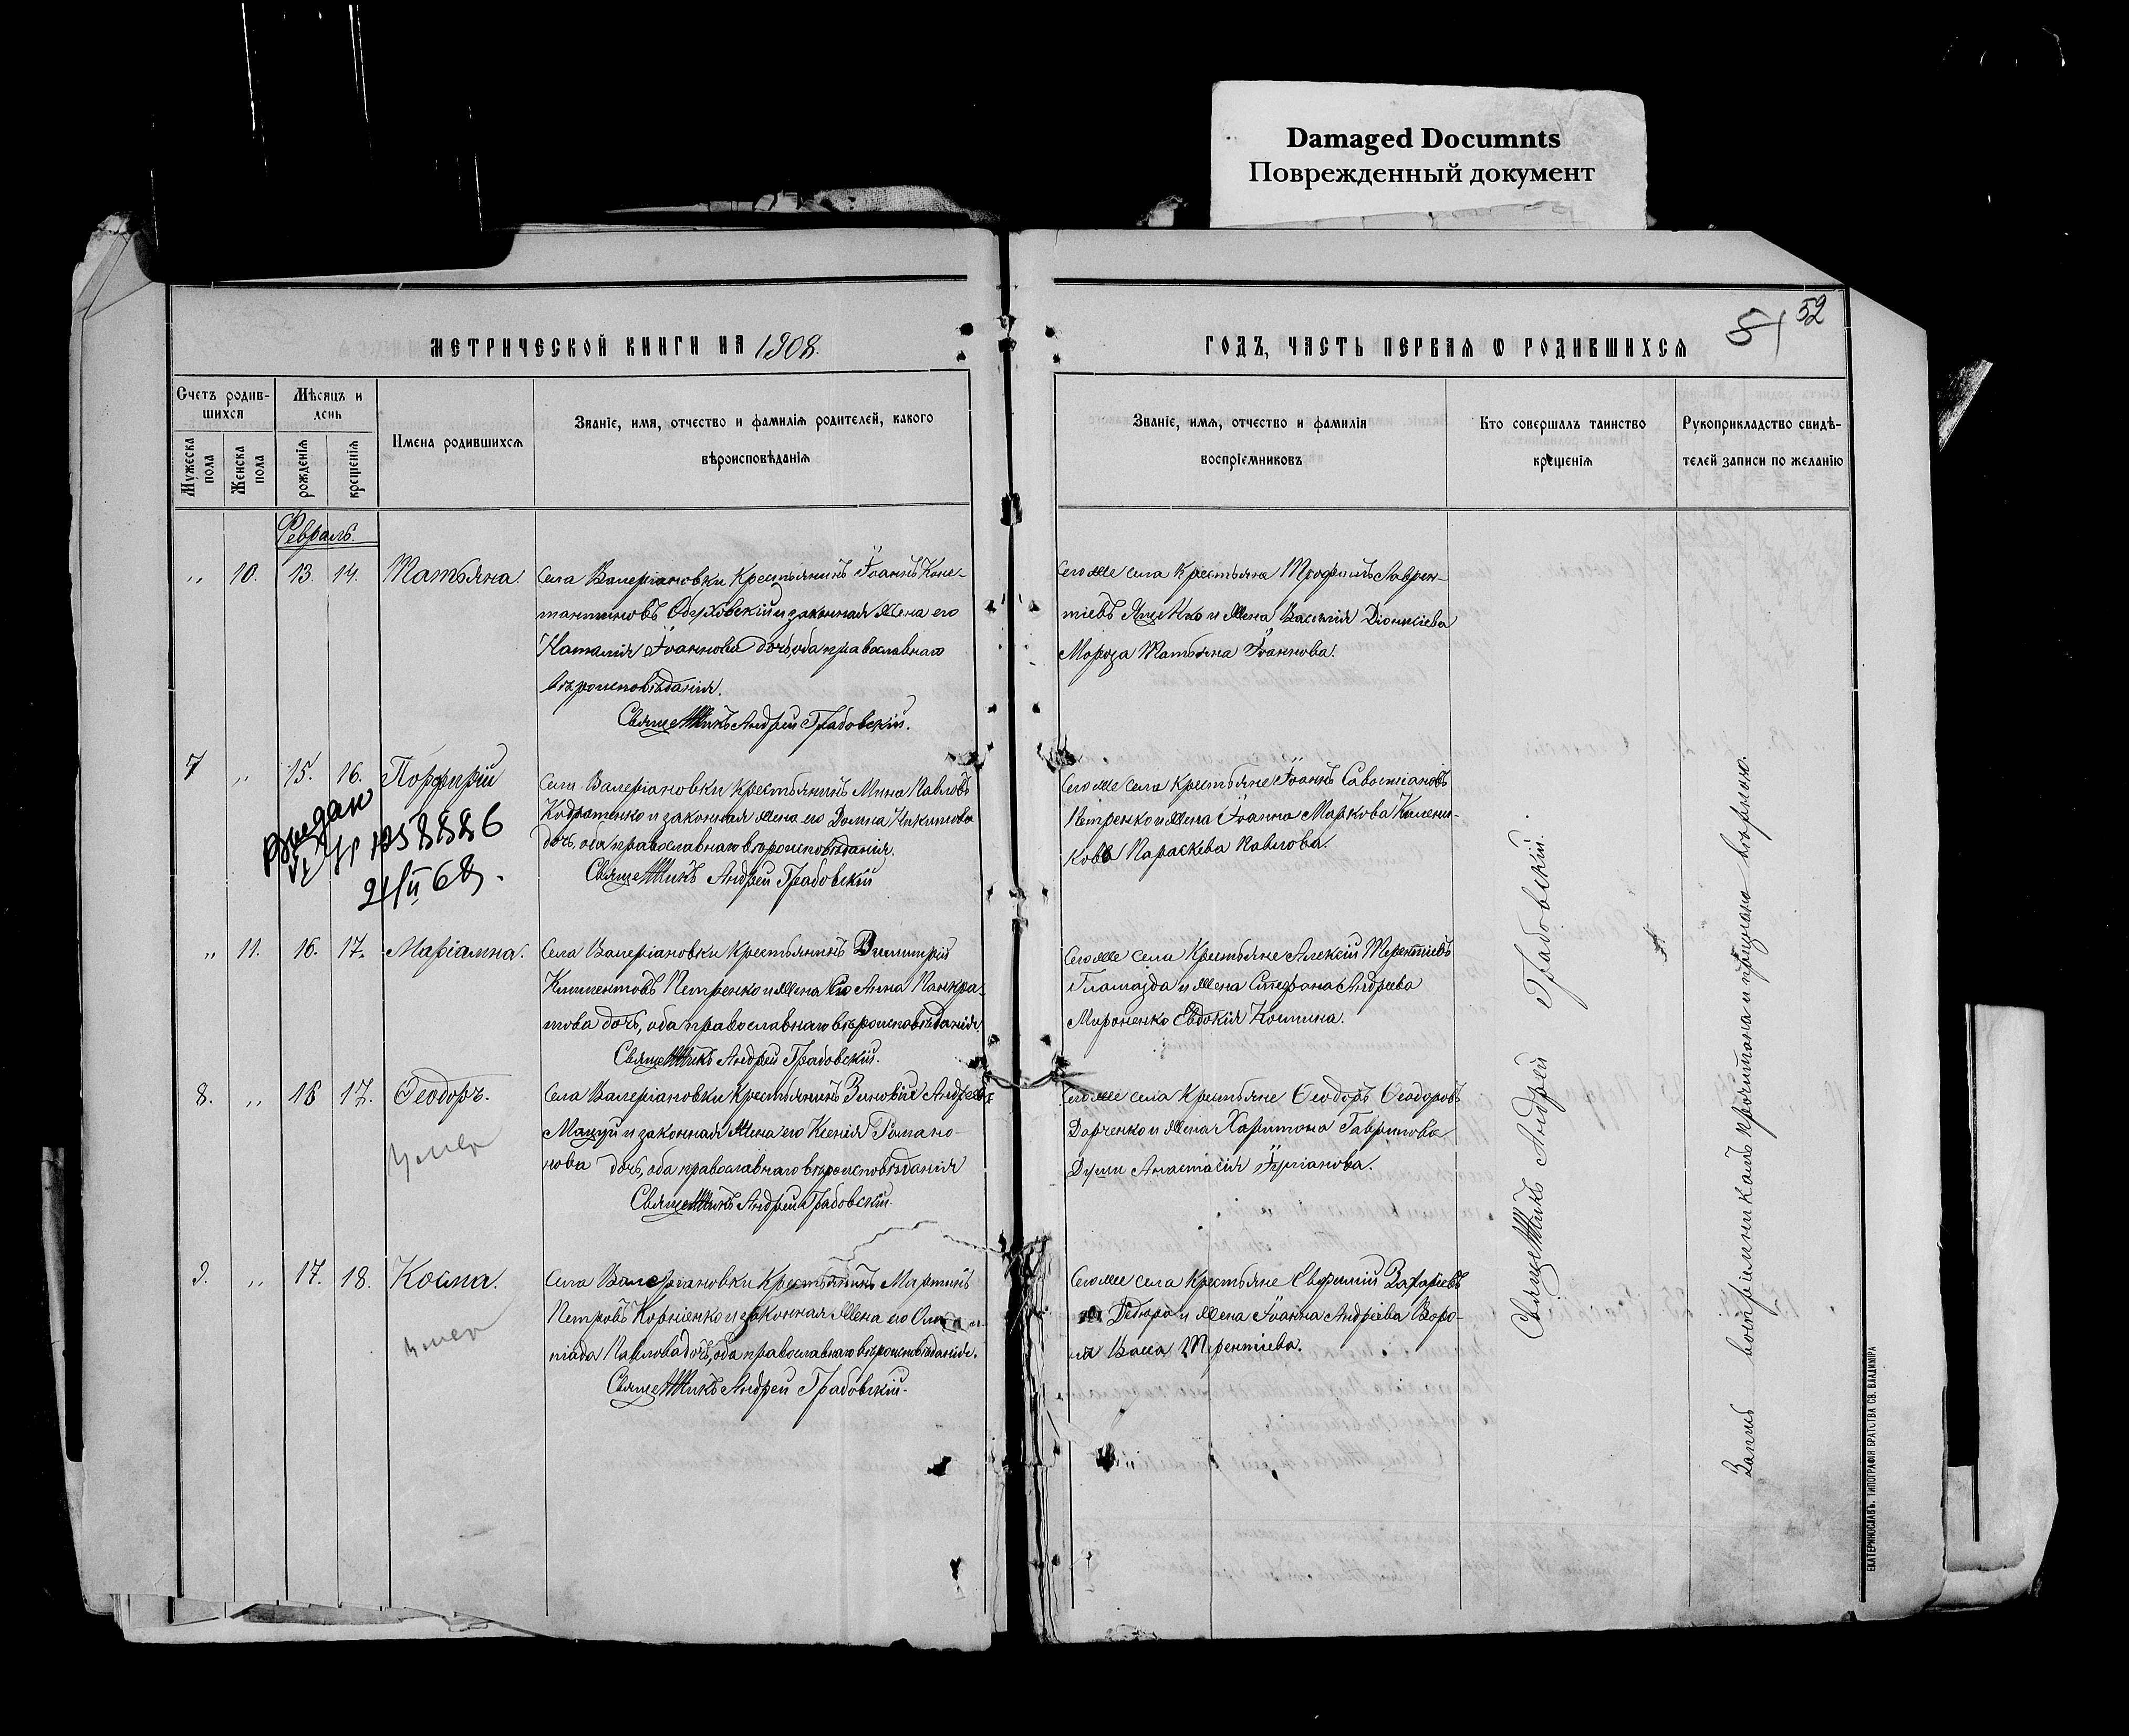 Damaged Documnts
Поврежденный документ
52
51
МЕТРИЧЕСКОЙ КНИГИ НА 1908.
ГОДЪ, ЧАСТЬ ПЕРВАЯ Ѡ РОДИВШИХСЯ
Счетъ родив-
шихся
Мѣсяцъ и
день
Мужеска
пола
Женска
пола
рожденія
крещенія
Имена родившихся
Званіе, имя, отчество и фамилія родителей, какого
вѣроисповѣданія
Званіе, имя, отчество и фамилія
воспріемниковъ
Кто совершалъ таинство
крещенія
Рукоприкладство свидѣ-
телей записи по желанію
Февраль.
„ 10. 13. 14. Татьяна.
Села Валеріановки крестьянинъ Іоаннъ Конс-
тантиновъ и законная жена его
Наталія Іоаннова дочь, оба православнаго
вѣроисповѣданія.
Священникъ Андрей Грабовскій.
Сего же села крестьяне Трофимъ Лаврен-
тіевъ и жена Василія Діонисіева
Мороза Татьяна Іоаннова.
7 „ 15. 16. Порфирій
Выдан
125886
21/II 68.
Села Валеріановки крестьянинъ Мина Павловъ
Кодратенко и законная жена его Домна Никитова
дочь, оба православнаго вѣроисповѣданія.
Священникъ Андрей Грабовскій
Сего же села крестьяне Іоаннъ Савостіановъ
Петренко и жена Іоанна Маркова
Параскева Павлова.
„ 11. 16. 17. Маріамна.
Села Валеріановки крестьянинъ Димитрій
Климентовъ Петренко и жена его Анна Панкра-
това дочь, оба православнаго вѣроисповѣданія.
Священникъ Андрей Грабовскій.
Сего же села крестьяне Алексій Терентіевъ
Гламазда и жена Стефана Андреева
Мироненко Евдокія Космина.
8. „ 16 17. Ѳеодоръ.
умер
Села Валеріановки крестьянинъ Зиновій Андреевъ
Мацуй и законная жена его Ксенія Романо-
нова дочь, оба православнаго вѣроисповѣданія
Священникъ Андрей Грабовскій.
Сего же села крестьяне Ѳеодоръ Ѳеодоровъ
Дорченко и жена Харитона Гаврилова
Анастасія
9. „ 17. 18. Косма.
умер
Села Валеріановки крестьянинъ Мартинъ
Петровъ Корніенко и законная жена его Олим-
піада Павлова дочь, оба православнаго вѣроисповѣданія.
Священникъ Андрей Грабовскій.
Сего же села крестьяне Евфимій Захаріевъ
и жена Іоанна Андреева
Васса Терентіева.
Священникъ Андрей Грабовскій.
Запись воспріемникамъ прочитана и признана вѣрною.
ЕКАТЕРИНОСЛАВЪ. ТИПОГРАФІЯ БРАТСТВА СВ. ВЛАДИМІРА